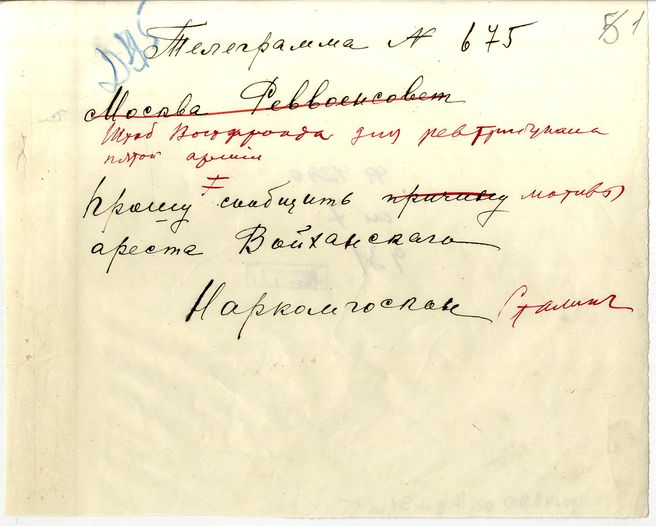 51
Телеграмма N 675
Москва Реввоенсовет
Штаб Востфронта для ревтрибунала
пятой армии
Прошу сообщить причину мотивы
ареста Войханскаго
Наркомгоскон Сталинъ